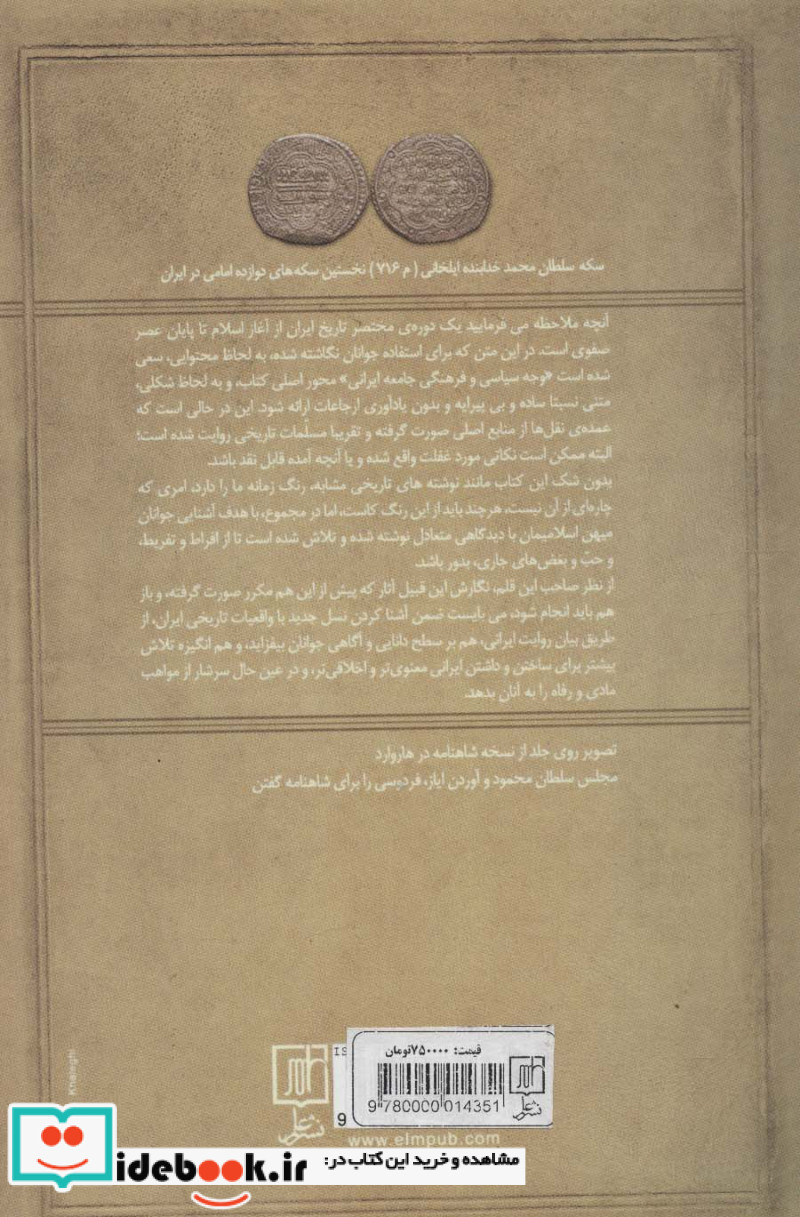 سکه سلطان محمد خدابنده ایلخانی (م ۷۱۶) نخستین سکه‌های دوازده امامی در ایران
آنچه ملاحظه می فرمایید یک دوره‌ی مختصر تاریخ ایران از آغاز اسلام تا پایان عصر
صفوی است. در این متن که برای استفاده جوانان نگاشته شده، به لحاظ محتوایی، سعی
شده است «وجه سیاسی و فرهنگی جامعه ایرانی» محور اصلی کتاب، و به لحاظ شکلی،
متنی نسبتا ساده و بی پیرایه و بدون یادآوری ارجاعات ارائه شود. این در حالی است که
عمده‌ی نقل‌ها از منابع اصلی صورت گرفته و تقریبا مسلّمات تاریخی روایت شده است؛
البته ممکن است نکاتی مورد غفلت واقع شده و یا آنچه آمده قابل نقد باشد.
بدون شک این کتاب مانند نوشته های تاریخی مشابه، رنگ زمانه ما را دارد، امری که
چاره‌ای از آن نیست، هرچند باید از این رنگ کاست، اما در مجموع، با هدف آشنایی جوانان
میهن اسلامیمان با دیدگاهی متعادل نوشته شده و تلاش شده است تا از افراط و تفریط،
و حبّ و بغض‌های جاری، بدور باشد.
از نظر صاحب این قلم، نگارش این قبیل آثار که پیش از این هم مکرر صورت گرفته، و باز
هم باید انجام شود، می بایست ضمن آشنا کردن نسل جدید با واقعیات تاریخی ایران، از
طریق بیان روایت ایرانی، هم بر سطح دانایی و آگاهی جوانان بیفزاید، و هم انگیزه تلاش
بیشتر برای ساختن و داشتن ایرانی معنوی‌تر و اخلاقی‌تر، و در عین حال سرشار از مواهب
مادی و رفاه را به آنان بدهد.
تصویر روی جلد از نسخه شاهنامه در هاروارد
مجلس سلطان محمود و آوردن ایاز، فردوسی را برای شاهنامه گفتن
قیمت: ۷۵۰۰۰۰تومان
IS
9 780000 014351
9
نشر علم
نشر علم
www.elmpub.com
Khaleghi
مشاهده و خرید این کتاب در:
idebook.ir